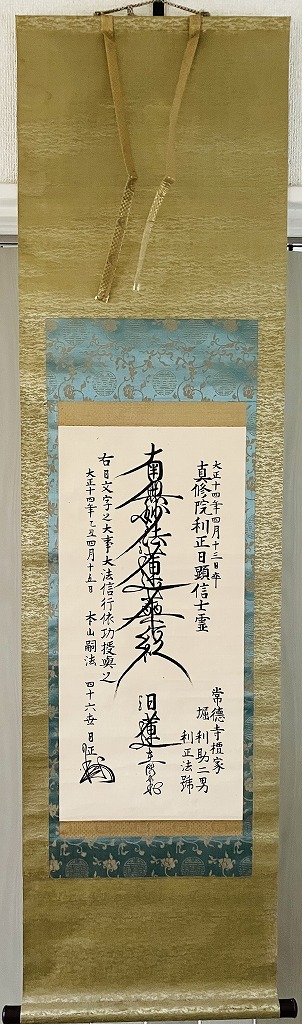 大正十四年四月十三日卒
真修院利正日顕信士霊
常德寺檀家
堀 利助二男
利正法號
南無妙法蓮華経
日蓮
右日文字之大事大法信行依功授與之
大正十四年乙丑四月十五日 本山嗣法 四十六世 日